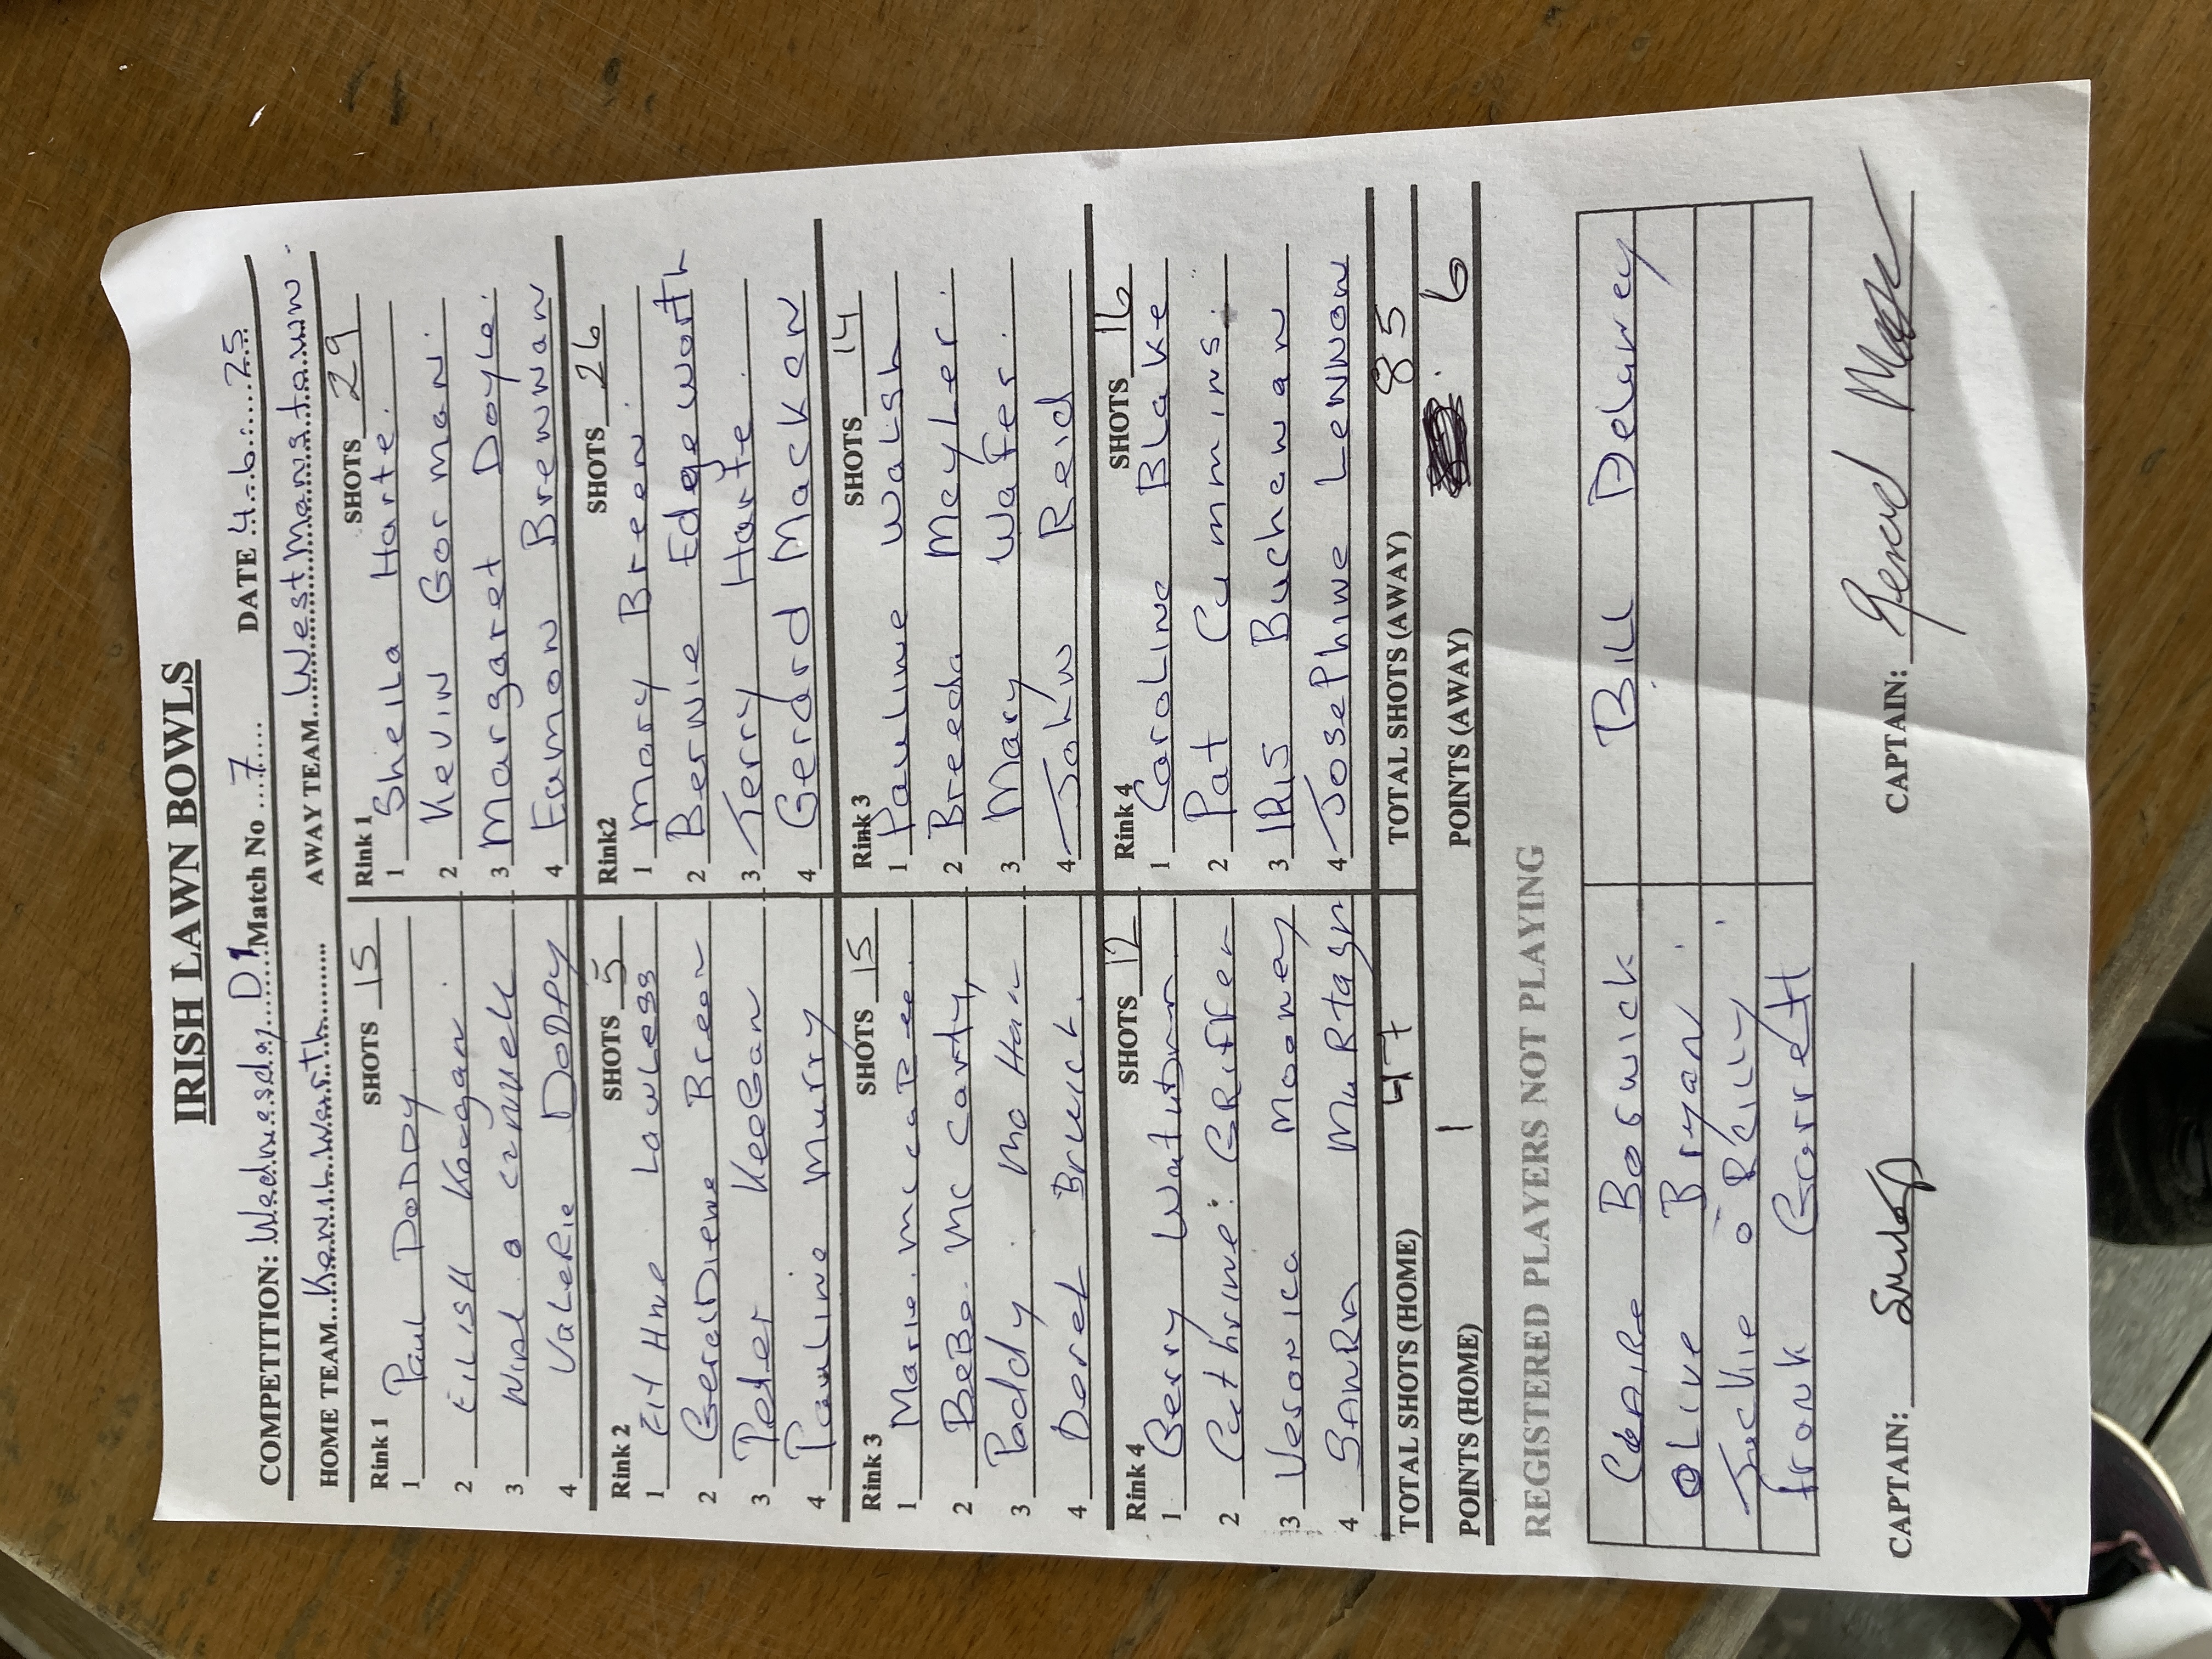 IRISH LAWN BOWLS
COMPETITION: Wednesday D1 Match No 7 DATE 4.6.25
HOME TEAM AWAY TEAM West Manstown
Rink 1 SHOTS 15
1 Paul DODDY
2 EiLiSH Keegan
3
4 VaLeRie DODDY
Rink 1 SHOTS 29
1 Sheila Harte
2 Kevin Gorman
3 Margaret Doyle
4 Eamon Brennan
Rink 2 SHOTS 5
1 EitHne LawLess
2 GeralDiene Breen
3 Peter KeeGan
4 Pauline Murry
Rink2 SHOTS 26
1 Mary Breen
2 Bernie Edgeworth
3 Terry Harte
4 Gerard Macken
Rink 3 SHOTS 15
1 Marie. McCabe
2 BeBe. Mc Carty
3 Paddy
4 Derek
Rink 3 SHOTS 14
1 Pauline Walsh
2 Breeda Meyler
3 Mary Wafer
4 John Reid
Rink 4 SHOTS 12
1 Berry
2 Cathrine: GRiffen
3 Veronica Mooney
4 SANDRA MuRtagh
Rink 4 SHOTS 16
1 Caroline Blake
2 Pat Cummins
3 IRIS Buchanan
4 Josephine Lennon
TOTAL SHOTS (HOME) 47 TOTAL SHOTS (AWAY) 85
POINTS (HOME) 1 POINTS (AWAY) 6
REGISTERED PLAYERS NOT PLAYING
Boswick Bill Delaney
OLive Bryan
Jackie o Reilly
frank Garrett
CAPTAIN: CAPTAIN: Gerard